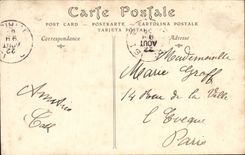 Carte Postale
POST CARD — POSTKARTE — CARTOLINA POSTALE
TARJETA POSTAL
Correspondance
Adresse
22
AOUT
Mademoiselle
Marie Groff
14 Rue de la Ville
l'Eveque
Paris